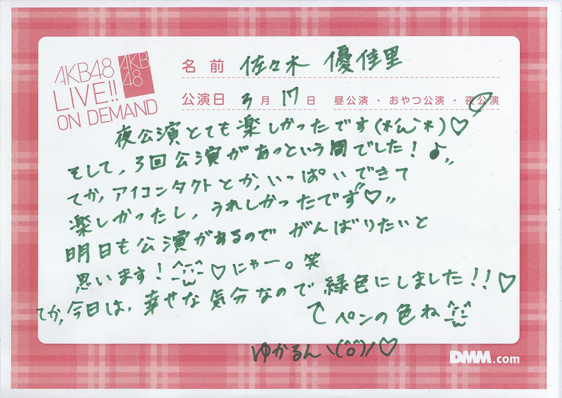 AKB48
LIVE!!
ON DEMAND
AKB
48
名前 佐々木 優佳里
公演日 3月17日 昼公演・おやつ公演・夜公演
夜公演とても楽しかったです(*´ω`*)♡
そして、3回公演があっという間でした!♪〃
てか、アイコンタクトとか、いっぱいできて
楽しかったし、うれしかったですッ♡〃
明日も公演があるので がんばりたいと
思います! ♡にゃー。笑
てか、今日は、幸せな気分なので緑色にしました!!♡
↑ペンの色ね
ゆかるんヽ(^o^)ノ♡
DMM.com